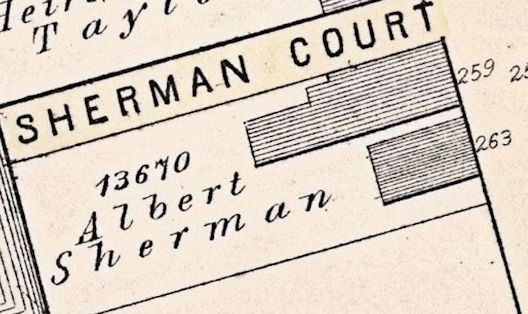 Taylo
SHERMAN COURT
259
25
263
13670
Albert
Sherman